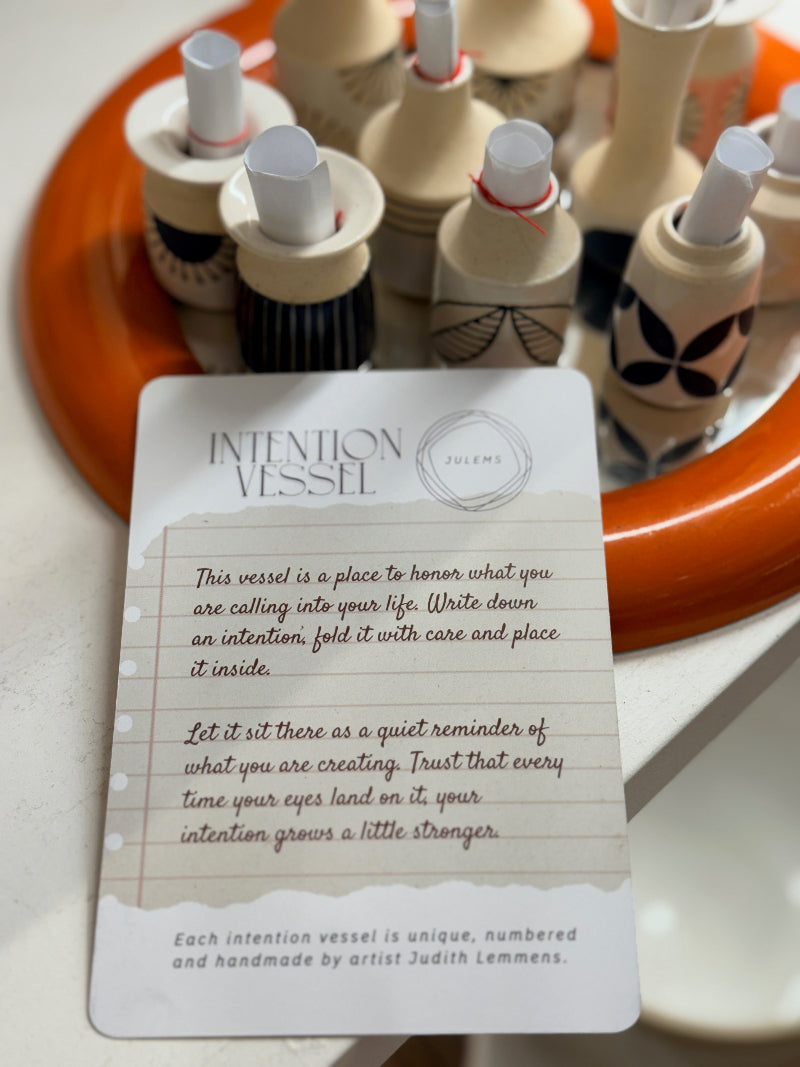 INTENTION
VESSEL
JULEMS
This vessel is a place to honor what you
are calling into your life. Write down
an intention, fold it with care and place
it inside.
Let it sit there as a quiet reminder of
what you are creating. Trust that every
time your eyes land on it, your
intention grows a little stronger.
Each intention vessel is unique, numbered
and handmade by artist Judith Lemmens.